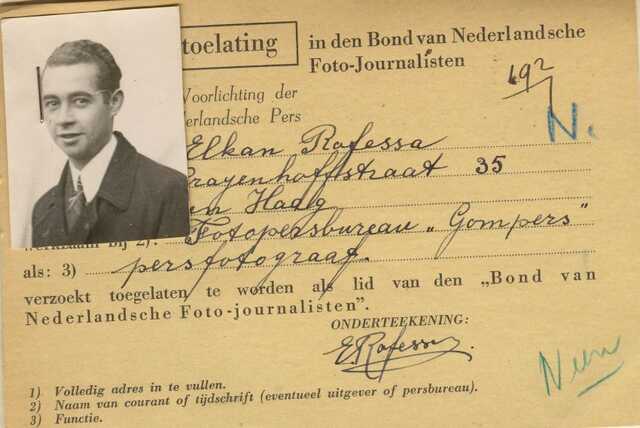 toelating
in den Bond van Nederlandsche
Foto-Journalisten
192
N.
Voorlichting der
erlandsche Pers
Elkan Rafessa
rayenhoffstraat 35
n Haag
werkzaam bij 2): Fotopersbureau „Gompers”
als: 3) persfotograaf.
verzoekt toegelaten te worden als lid van den „Bond van
Nederlandsche Foto-journalisten”.
ONDERTEEKENING:
E. Rafessa
Neen
1) Volledig adres in te vullen.
2) Naam van courant of tijdschrift (eventueel uitgever of persbureau).
3) Functie.